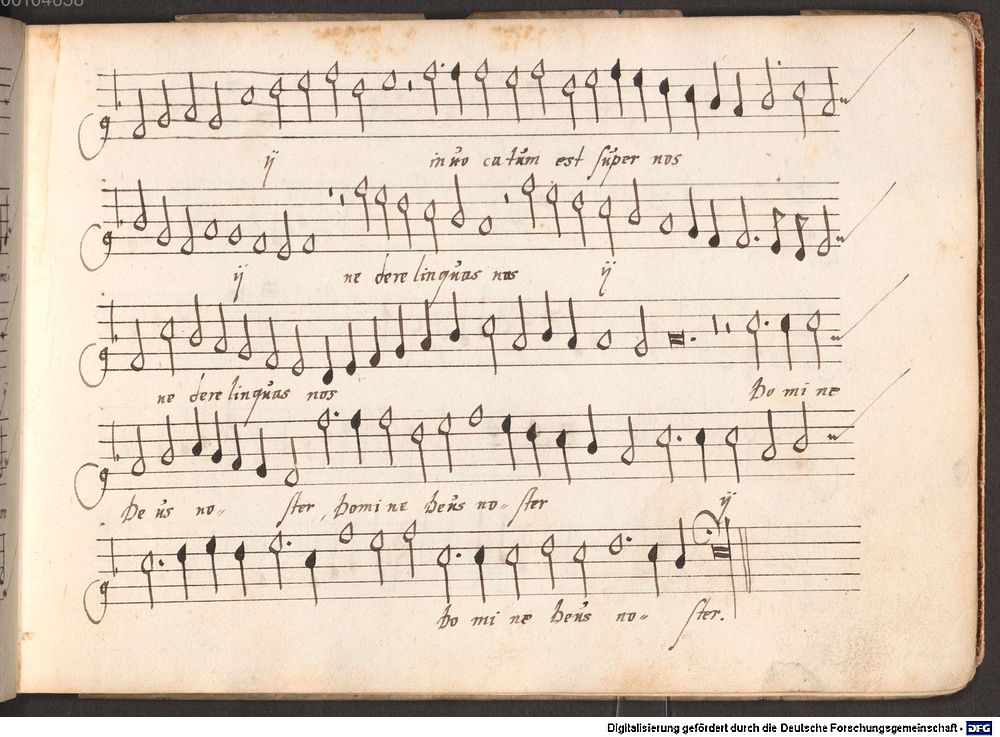 00104638
ij invo catum est super nos
ij ne dere linquas nos ij
ne dere linquas nos Do mi ne
De us no- ster, Domi ne Deus no- ster ij
Do mi ne Deus no- ster.
Digitalisierung gefördert durch die Deutsche Forschungsgemeinschaft - DFG